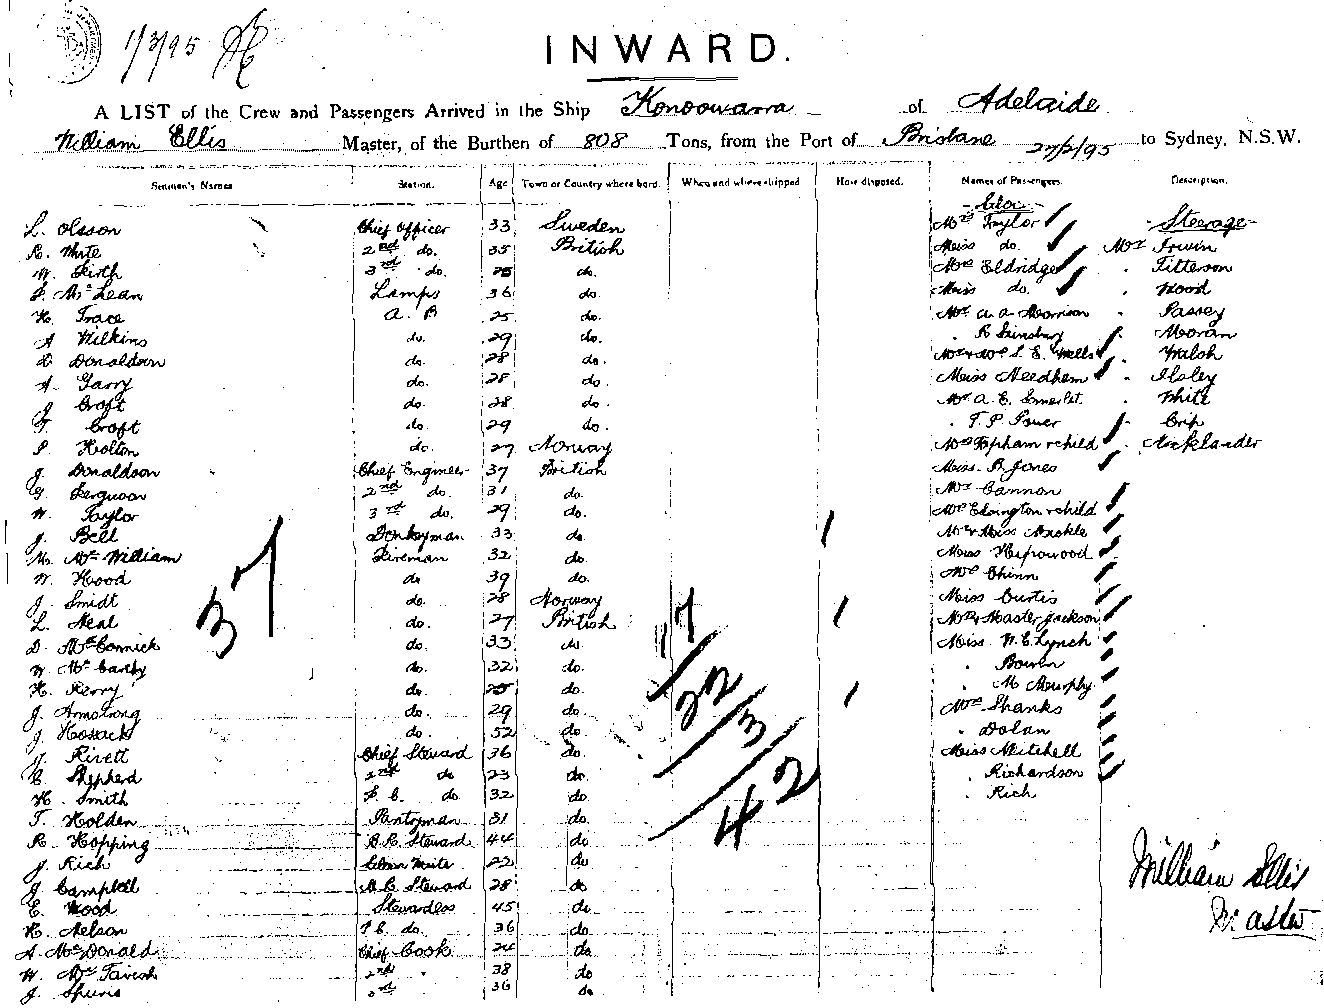 1/3/95
INWARD.
A LIST of the Crew and Passengers Arrived in the Ship Konoowarra of Adelaide
William Ellis Master, of the Burthen of 808 Tons, from the Port of Brisbane 27/2/95 to Sydney, N.S.W.
Seamen's Names Station. Age Town or Country where born. When and where shipped How disposed. Names of Passengers. Description.
L. Olsson Chief Officer 33 Sweden Mrs Taylor Steerage
R. White 2nd do. 35 British Miss do. Mr Irwin
W. Firth 3rd do. 25 do. Mrs Eldridge Titterson
Mc Lean Lamps 36 do. Miss do. Wood
H. Trace A. B 25 do. Mr A. A. Morrison Passey
A Wilkins do. 29 do. R Sainsbury Moran
D Donaldson do. 28 do. Mr & Mrs L. E. Wells Walsh
A. Garry do. 28 do. Miss Needham Ilsley
J Croft do. 28 do. Mr A. E. Somerset. White
T. Croft do. 29 do. T. P. Power
P. Holton do. 27 Norway Mrs Topham & child Aucklander
J. Donaldson Chief Engineer 37 British Miss B. Jones
G. Ferguson 2nd do. 31 do. Mr Cannon
W. Taylor 3rd do. 29 do. Mrs Edington & child
J. Bell Donkeyman 33 do. Mr & Miss
M. Mc William Fireman 32 do. Miss
W. Hood do 39 do. Mrs Chinn
J. Smidt do. 28 Norway Miss Curtis
L. Neal do. 27 British Mrs & Master Jackson
D. McCormick do. 33 do. Miss N. E. Lynch
W McCarthy do. 32 do. Bowen
H. Kerry do. 25 do. M. Murphy.
J. Armstrong do. 29 do. Mrs Shanks
J. Hossack do. 52 do. Dolan
J. Rivett Chief Steward 36 do. Miss Mitchell
C. Shepherd 2nd do 23 do. Richardson
H. Smith F. C. do. 32 do. Rich
T. Holden Pantryman 31 do.
R. Hopping B.R. Steward 44 do
J. Rich 22 do
J Campbell Steward 28 do
E. Wood Stewardess 45 do
H. Nelson do. 36 do
A. McDonald Chief Cook 24 do
W. McTavish 2nd 38 do
J. 3rd 36 do
37
17
22
3
42
William Ellis
Master